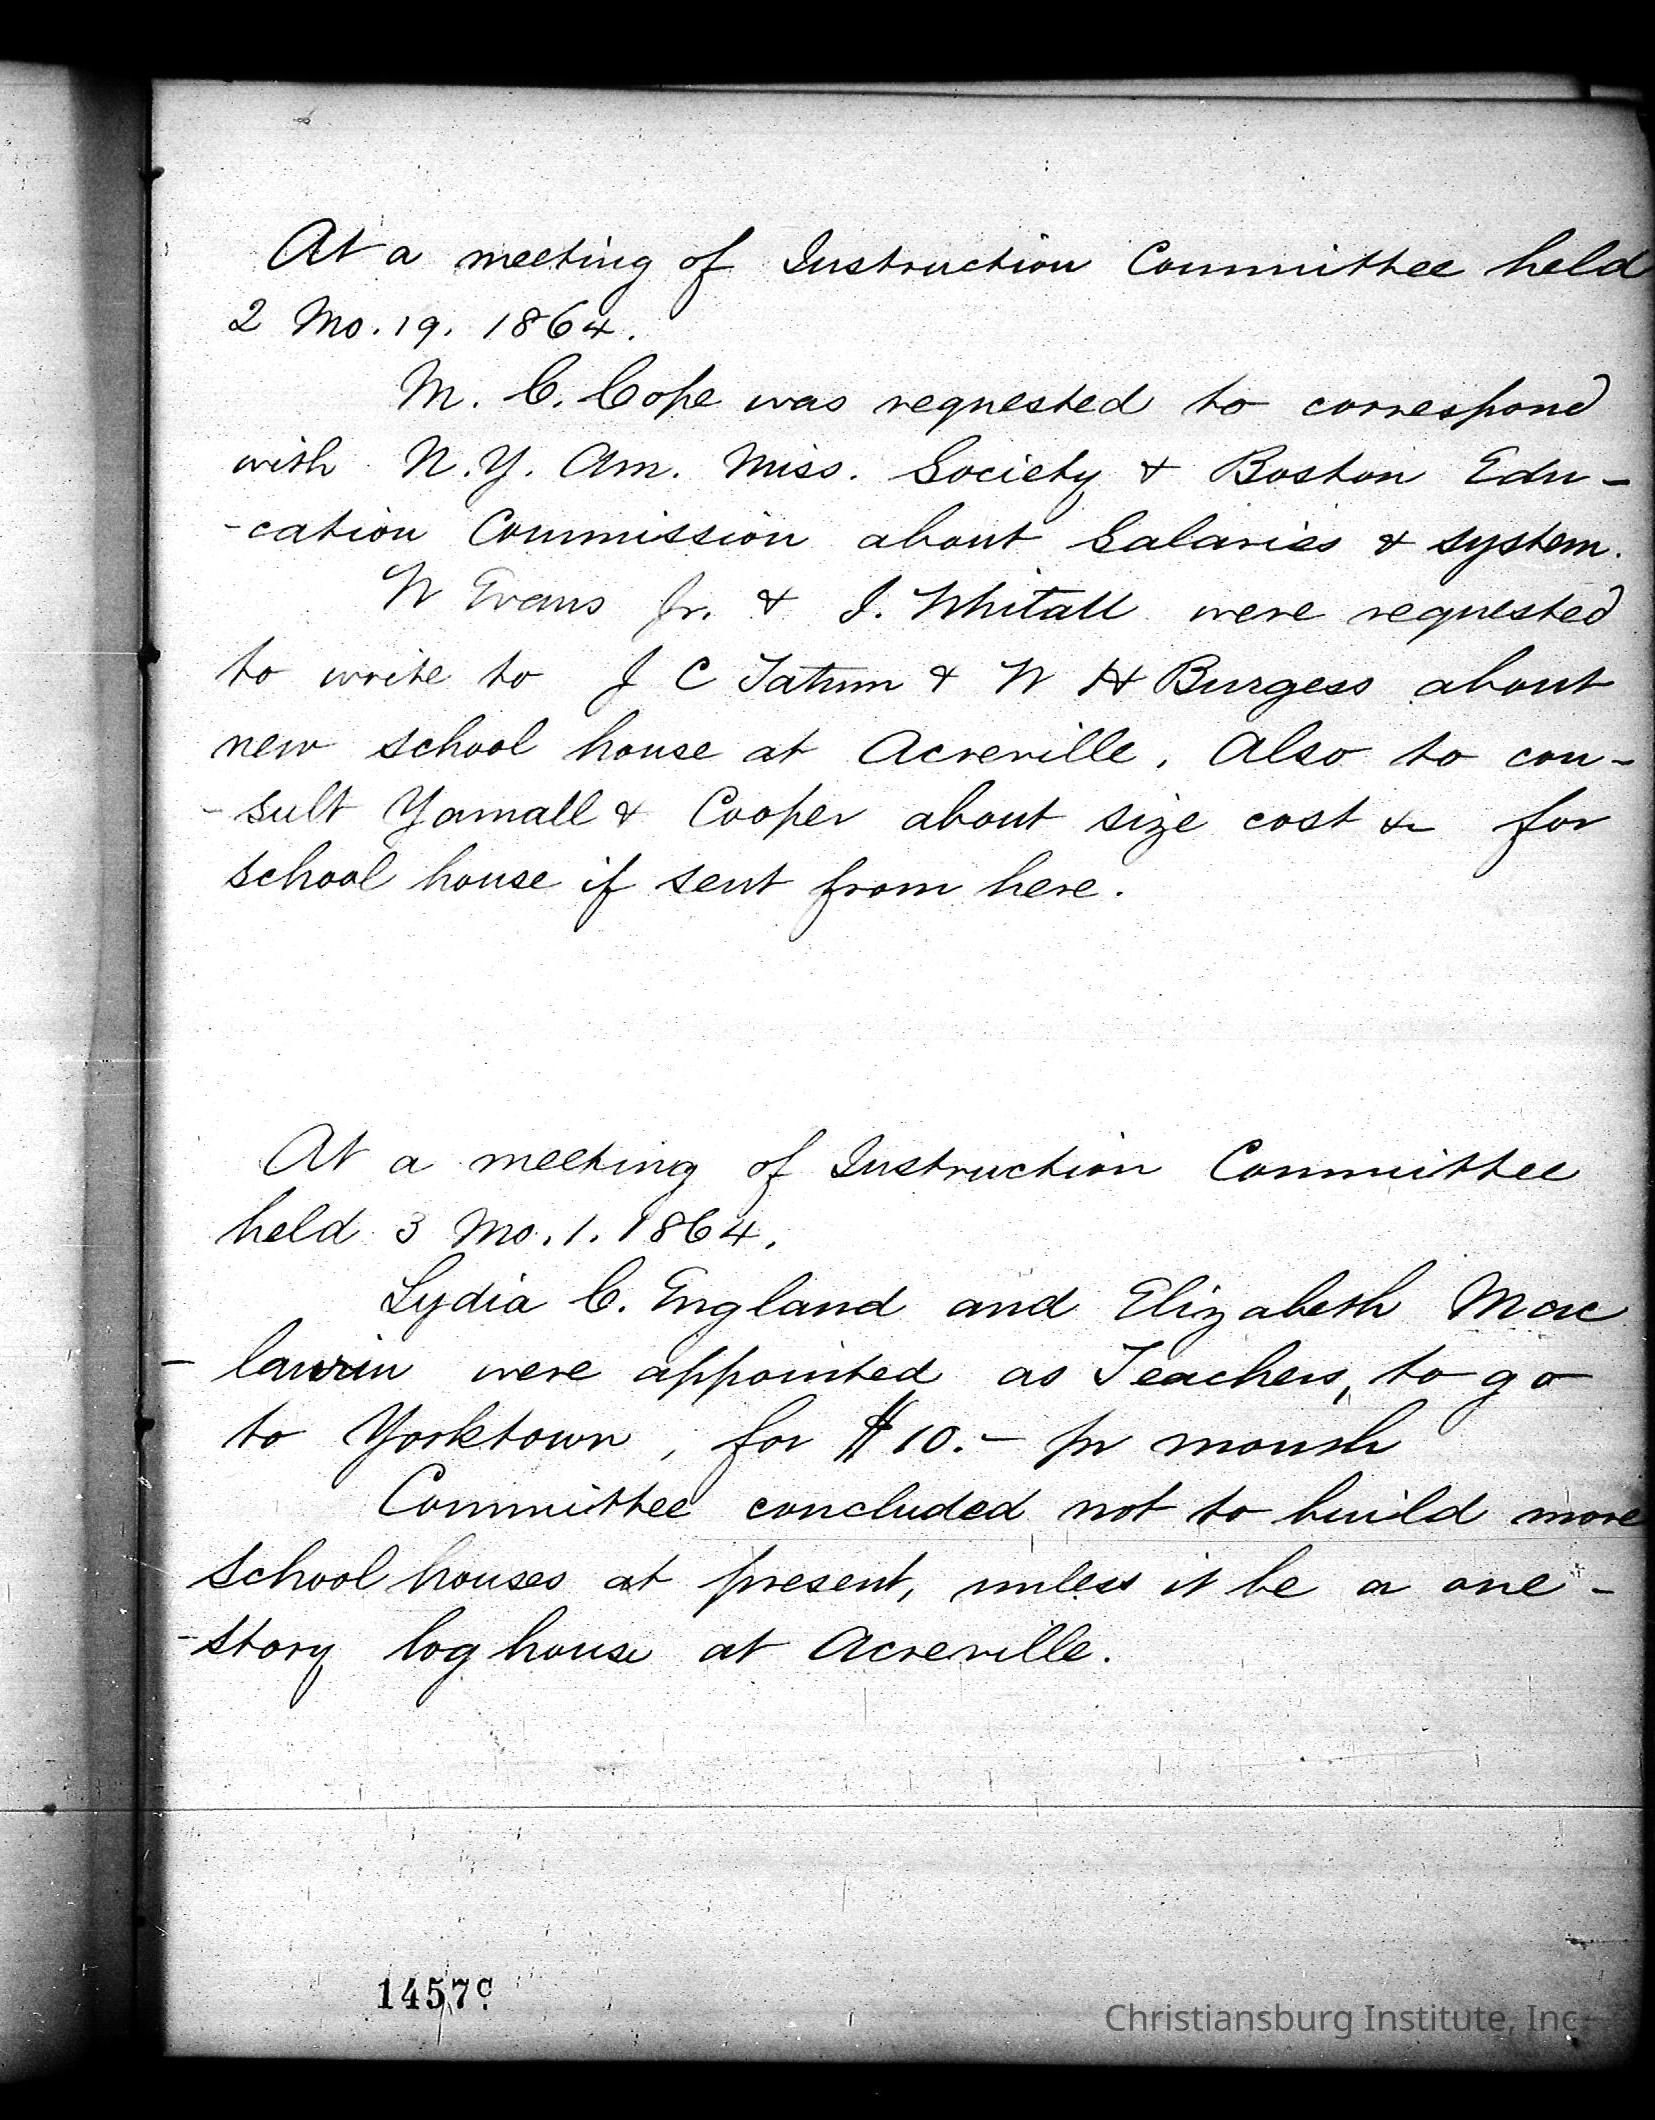 At a meeting of Instruction Committee held
2 Mo. 19. 1864.
M. C. Cope was requested to correspond
with N.Y. Am. Miss. Society & Boston Edu-
-cation Commission about Salaries & system.
W Evans Jr. & J. Whitall were requested
to write to J C Tatum & W H Burgess about
new school house at Acreville. Also to con-
-sult Yarnall & Cooper about size cost &c for
school house if sent from here.
At a meeting of Instruction Committee
held 3 Mo. 1. 1864.
Lydia C. England and Elizabeth Mac
- laurin were appointed as Teachers, to go
to Yorktown, for $10.- pr month
Committee concluded not to build more
school houses at present, unless it be a one-
-story log house at Acreville.
1457c
Christiansburg Institute, Inc